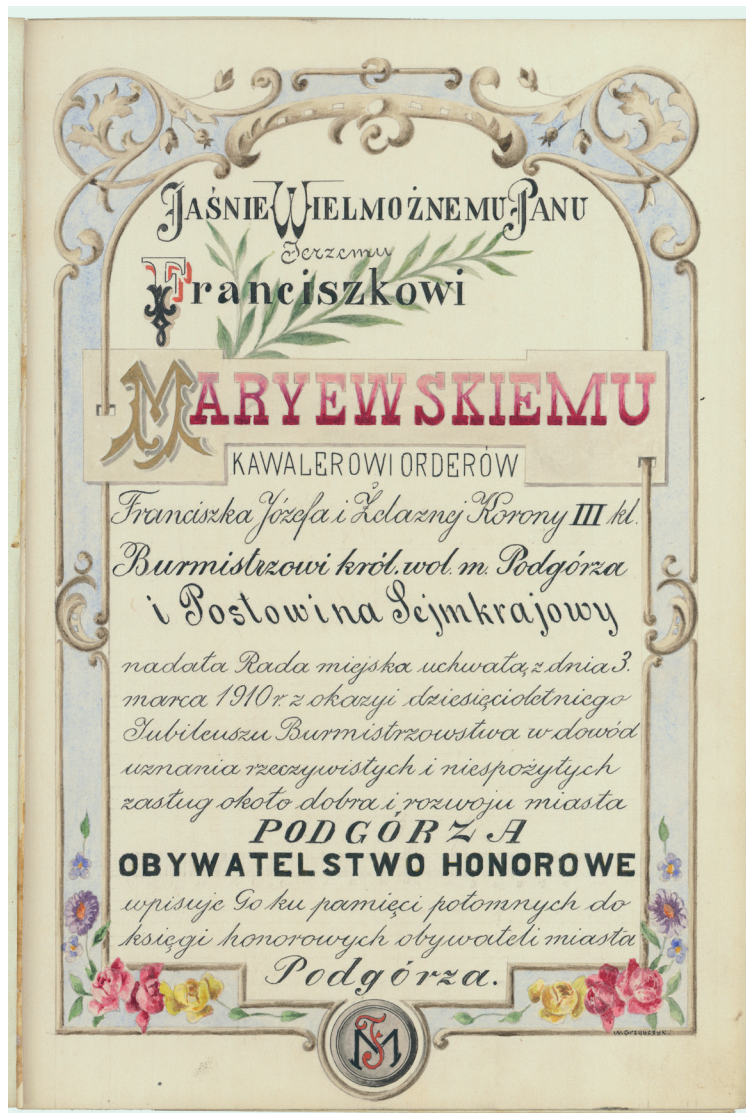 JAŚNIE WIELMOŻNEMU PANU
Jerzemu
Franciszkowi
MARYEWSKIEMU
KAWALEROWI ORDERÓW
Franciszka Józefa i Żelaznej Korony III kl.
Burmistrzowi król. wol. m. Podgórza
i Posłowi na Sejm krajowy
nadała Rada miejska uchwałą z dnia 3.
marca 1910 r. z okazyi dziesięcioletniego
Jubileuszu Burmistrzowstwa w dowód
uznania rzeczywistych i niespożytych
zasług około dobra i rozwoju miasta
PODGÓRZA
OBYWATELSTWO HONOROWE
wpisuje Go ku pamięci potomnych do
księgi honorowych obywateli miasta
Podgórza.